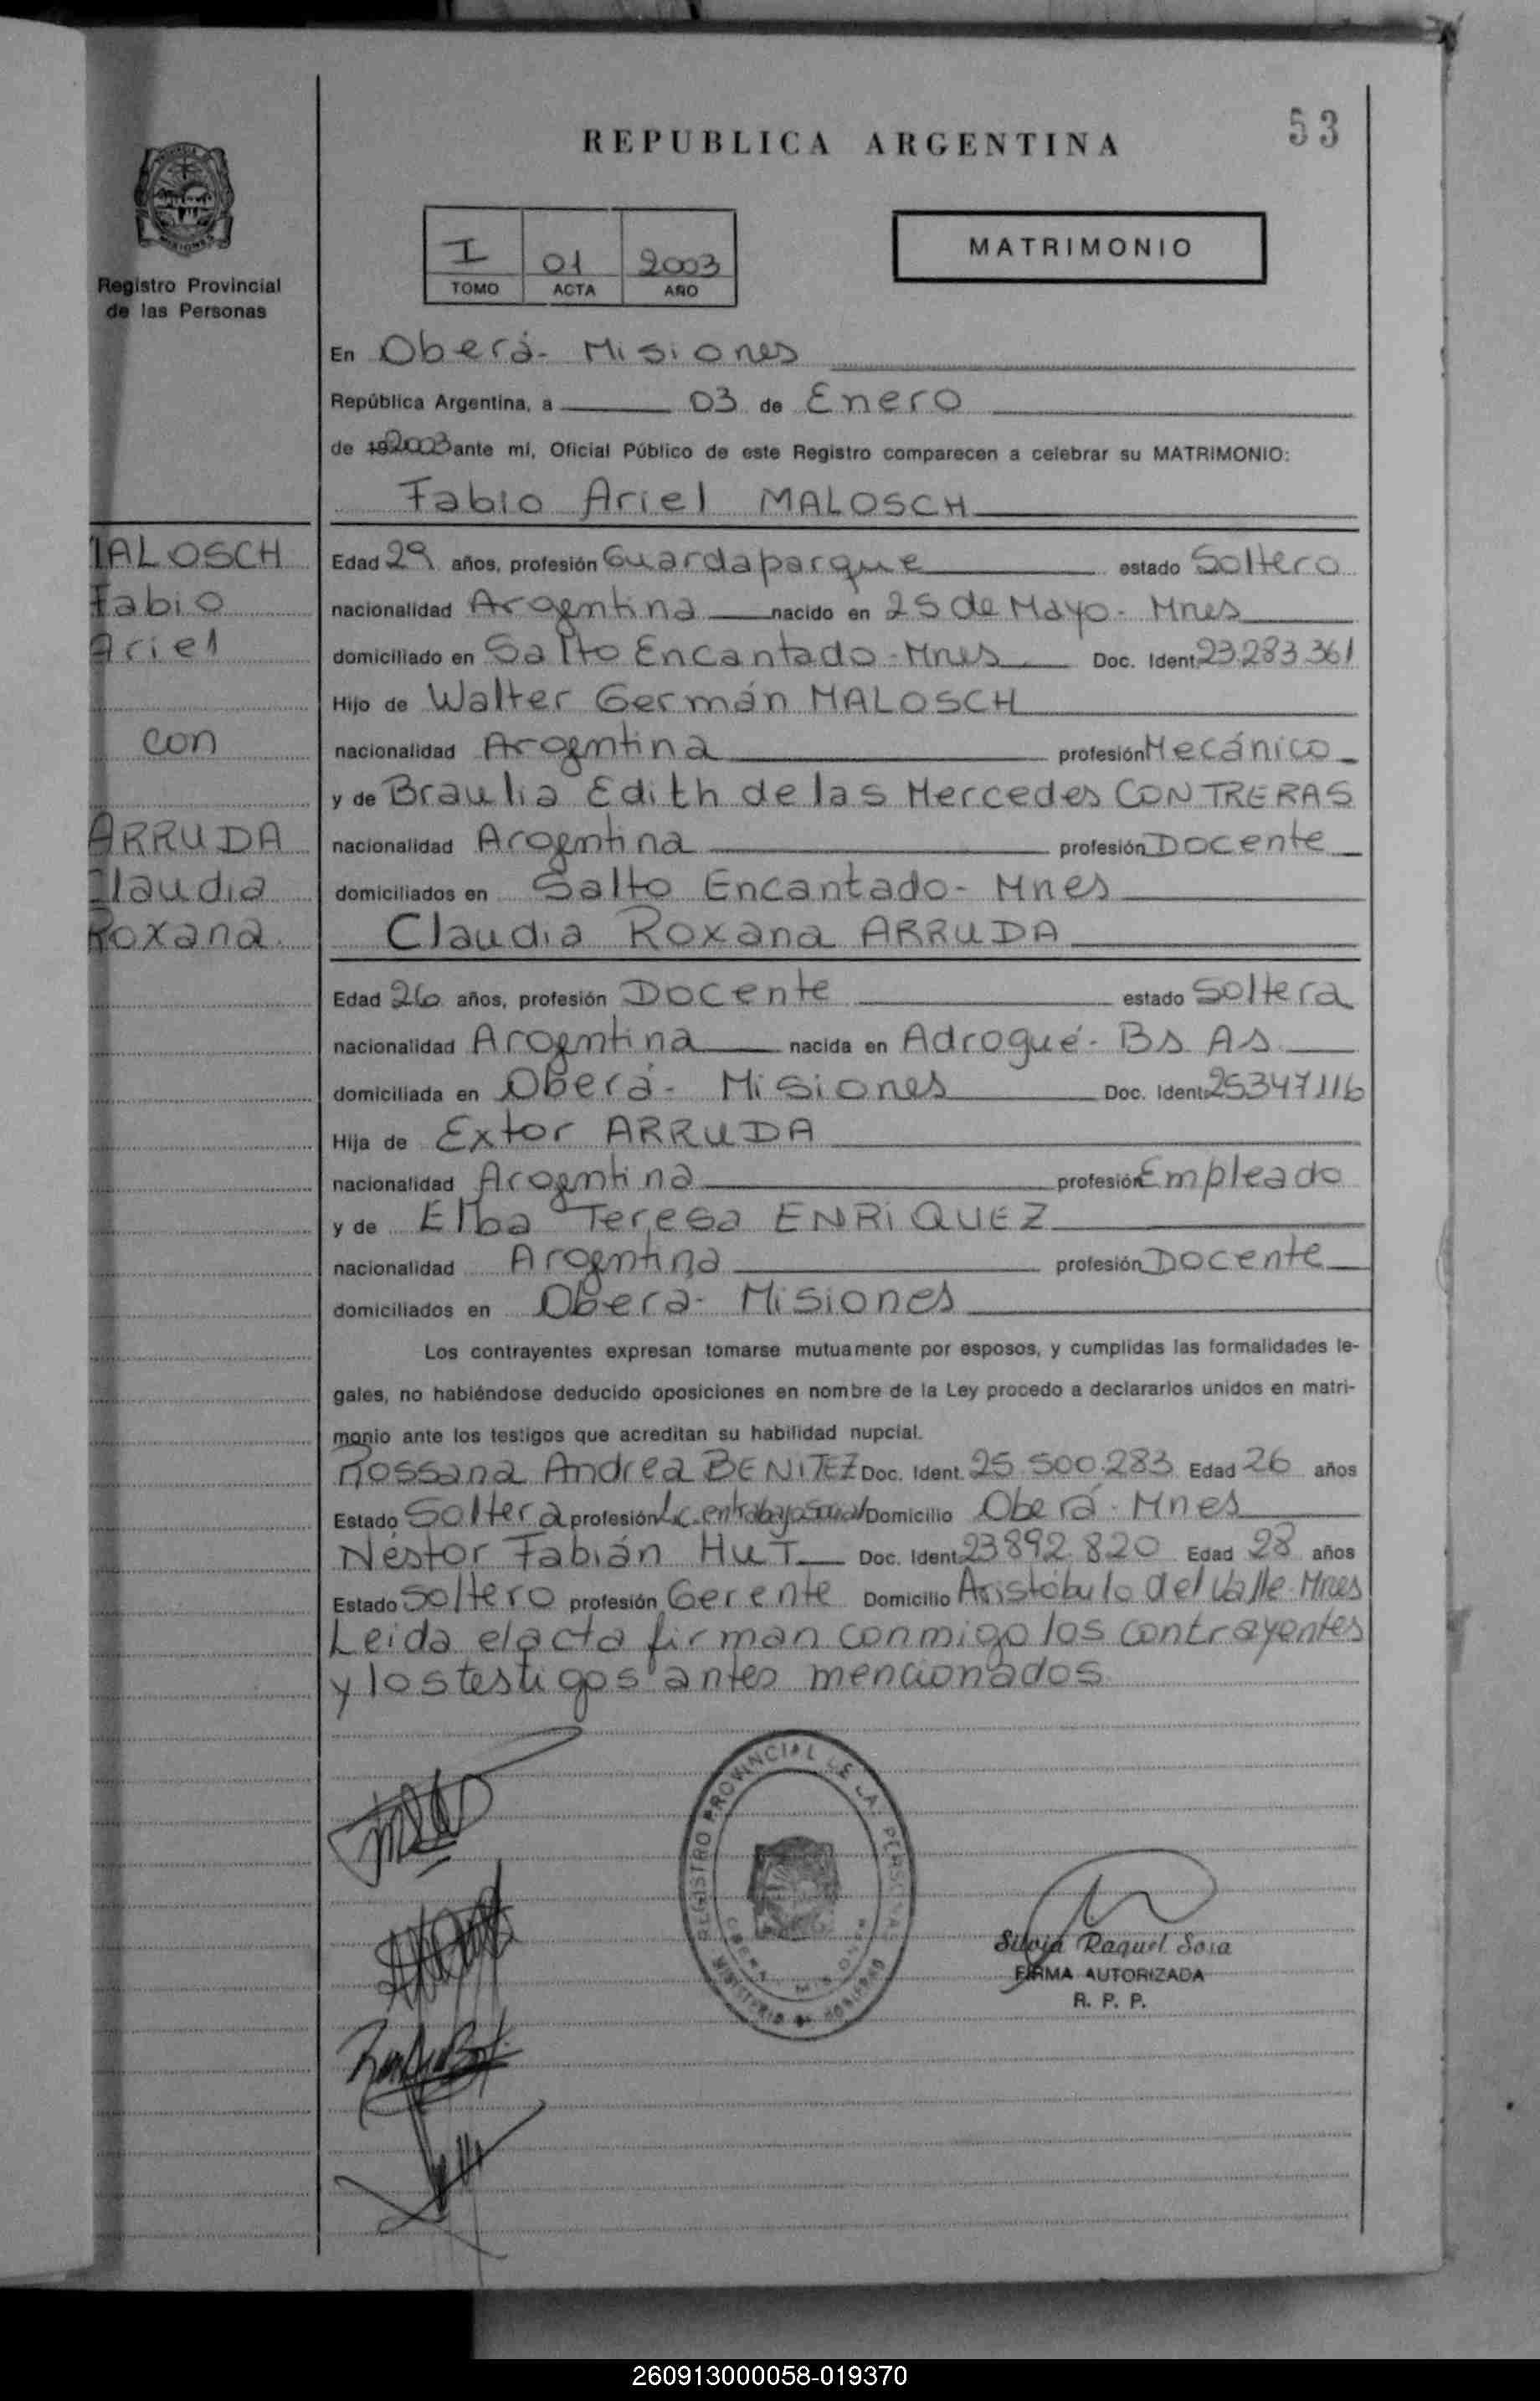 53
REPUBLICA ARGENTINA
MATRIMONIO
I 01 2003
TOMO ACTA AÑO
Registro Provincial
de las Personas
En Oberá- Misiones
República Argentina, a 03 de Enero
de 19 2003 ante mí, Oficial Público de este Registro comparecen a celebrar su MATRIMONIO:
Fabio Ariel MALOSCH
ALOSCH
Fabio
Ariel
con
ARRUDA
Claudia
Roxana
Edad 29 años, profesión Guardaparque estado Soltero
nacionalidad Argentina nacido en 25 de Mayo - Mnes
domiciliado en Salto Encantado - Mnes Doc. Ident. 23.283.361
Hijo de Walter Germán MALOSCH
nacionalidad Argentina profesión Mecánico
y de Braulia Edith de las Mercedes CONTRERAS
nacionalidad Argentina profesión Docente
domiciliados en Salto Encantado- Mnes
Claudia Roxana ARRUDA
Edad 26 años, profesión Docente estado Soltera
nacionalidad Argentina nacida en Adrogué- Bs As
domiciliada en Oberá- Misiones Doc. Ident. 25347116
Hija de Extor ARRUDA
nacionalidad Argentina profesión Empleado
y de Elba Teresa ENRIQUEZ
nacionalidad Argentina profesión Docente
domiciliados en Oberá- Misiones
Los contrayentes expresan tomarse mutuamente por esposos, y cumplidas las formalidades le-
gales, no habiéndose deducido oposiciones en nombre de la Ley procedo a declararlos unidos en matri-
monio ante los testigos que acreditan su habilidad nupcial.
Rossana Andrea BENITEZ Doc. Ident. 25.500.283 Edad 26 años
Estado Soltera profesión Lic. en trabajo Social Domicilio Oberá - Mnes
Néstor Fabián HUT Doc. Ident. 23892.820 Edad 28 años
Estado Soltero profesión Gerente Domicilio Aristóbulo del Valle-Mnes
Leida el acta firman conmigo los contrayentes
y los testigos antes mencionados
REGISTRO PROVINCIAL DE LA PERSONAS
Silvia Raquel Sosa
FIRMA AUTORIZADA
R. P. P.
260913000058-019370